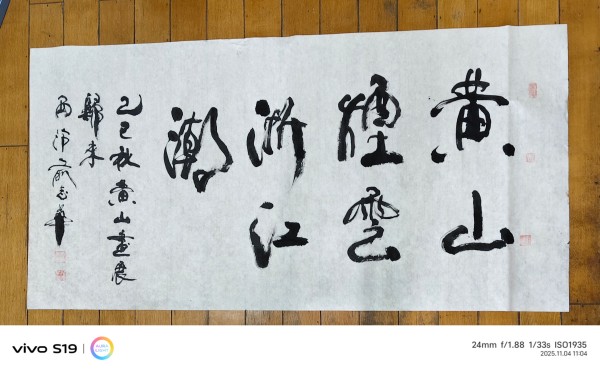 黄山
烟雲
浙江
潮
乙巳秋黄山画展
歸来
西泠俞志華
vivo S19
24mm f/1.88 1/33s ISO1935
2025.11.04 11:04